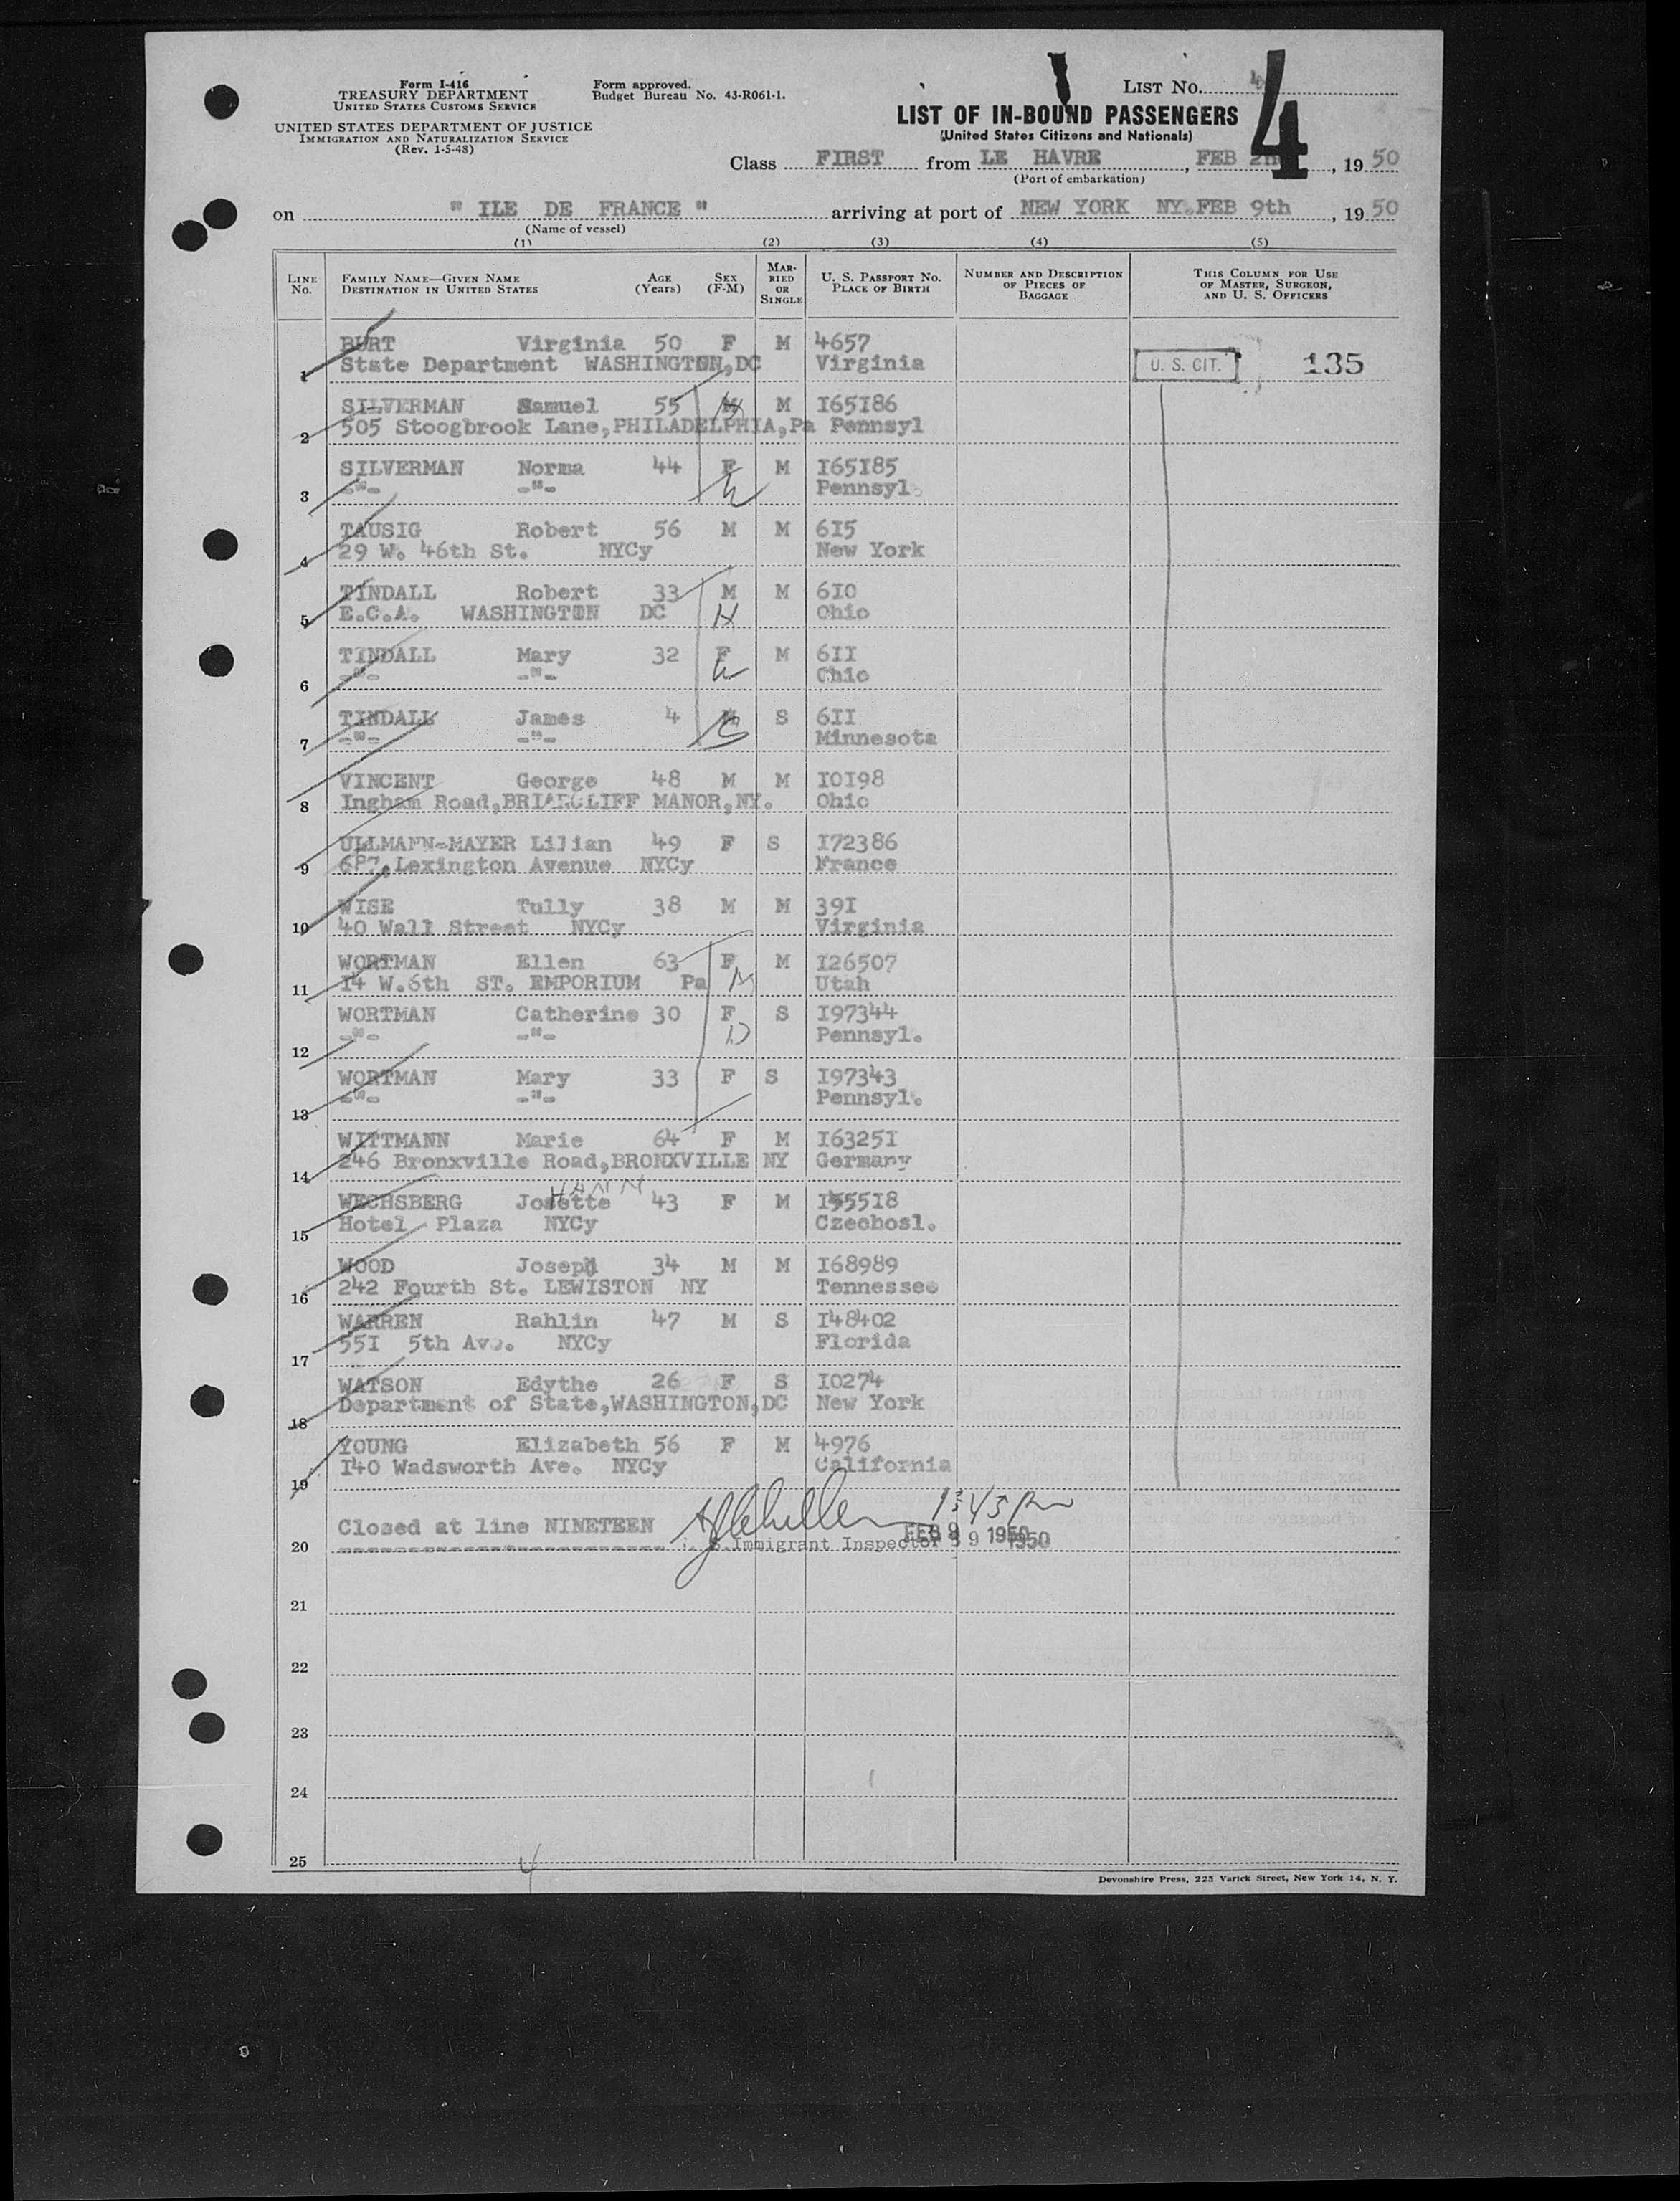 Form I-416
TREASURY DEPARTMENT
UNITED STATES CUSTOMS SERVICE
UNITED STATES DEPARTMENT OF JUSTICE
IMMIGRATION AND NATURALIZATION SERVICE
(Rev. 1-5-48)
Form approved.
Budget Bureau No. 43-R061-1.
LIST No.
4
LIST OF IN-BOUND PASSENGERS
(United States Citizens and Nationals)
Class FIRST from LE HAVRE, FEB 2nd, 1950
(Port of embarkation)
on " ILE DE FRANCE " arriving at port of NEW YORK NY. FEB 9th, 1950
(Name of vessel)
(1) (2) (3) (4) (5)
LINE No. FAMILY NAME—GIVEN NAME DESTINATION IN UNITED STATES AGE (Years) SEX (F-M) MARRIED OR SINGLE U. S. PASSPORT No. PLACE OF BIRTH NUMBER AND DESCRIPTION OF PIECES OF BAGGAGE THIS COLUMN FOR USE OF MASTER, SURGEON, AND U. S. OFFICERS
BURT Virginia 50 F M 4657
1 State Department WASHINGTON,DC Virginia U. S. CIT. 135
SILVERMAN Samuel 55 M M I65I86
2 505 Stoogbrook Lane,PHILADELPHIA,Pa Pennsyl
SILVERMAN Norma 44 F M I65I85
3 -"- -"- Pennsyl.
TAUSIG Robert 56 M M 6I5
4 29 W. 46th St. NYCy New York
TINDALL Robert 33 M M 6IO
5 E.C.A. WASHINGTON DC H Ohio
TINDALL Mary 32 F M 6II
6 -"- -"- W Ohio
TINDALL James 4 S 6II
7 -"- -"- S Minnesota
VINCENT George 48 M M IOI98
8 Ingham Road,BRIARCLIFF MANOR,NY. Ohio
ULLMANN-MAYER Lilian 49 F S I72386
9 687,Lexington Avenue NYCy France
WISE Tully 38 M M 39I
10 40 Wall Street NYCy Virginia
WORTMAN Ellen 63 F M I26507
11 I4 W.6th ST. EMPORIUM Pa M Utah
WORTMAN Catherine 30 F S I97344
12 -"- -"- D Pennsyl.
WORTMAN Mary 33 F S I97343
13 -"- -"- Pennsyl.
WITTMANN Marie 64 F M I6325I
14 246 Bronxville Road,BRONXVILLE NY Germany
HANN
WECHSBERG Josette 43 F M I555I8
15 Hotel Plaza NYCy Czechosl.
WOOD Joseph 34 M M I68989
16 242 Fourth St. LEWISTON NY Tennessee
WARREN Rahlin 47 M S I48402
17 55I 5th Ave. NYCy Florida
WATSON Edythe 26 F S IO274
18 Department of State,WASHINGTON,DC New York
YOUNG Elizabeth 56 F M 4976
19 I40 Wadsworth Ave. NYCy California
Closed at line NINETEEN
20 Immigrant Inspector FEB 9 1950
21
22
23
24
25
4
Devonshire Press, 225 Varick Street, New York 14, N. Y.